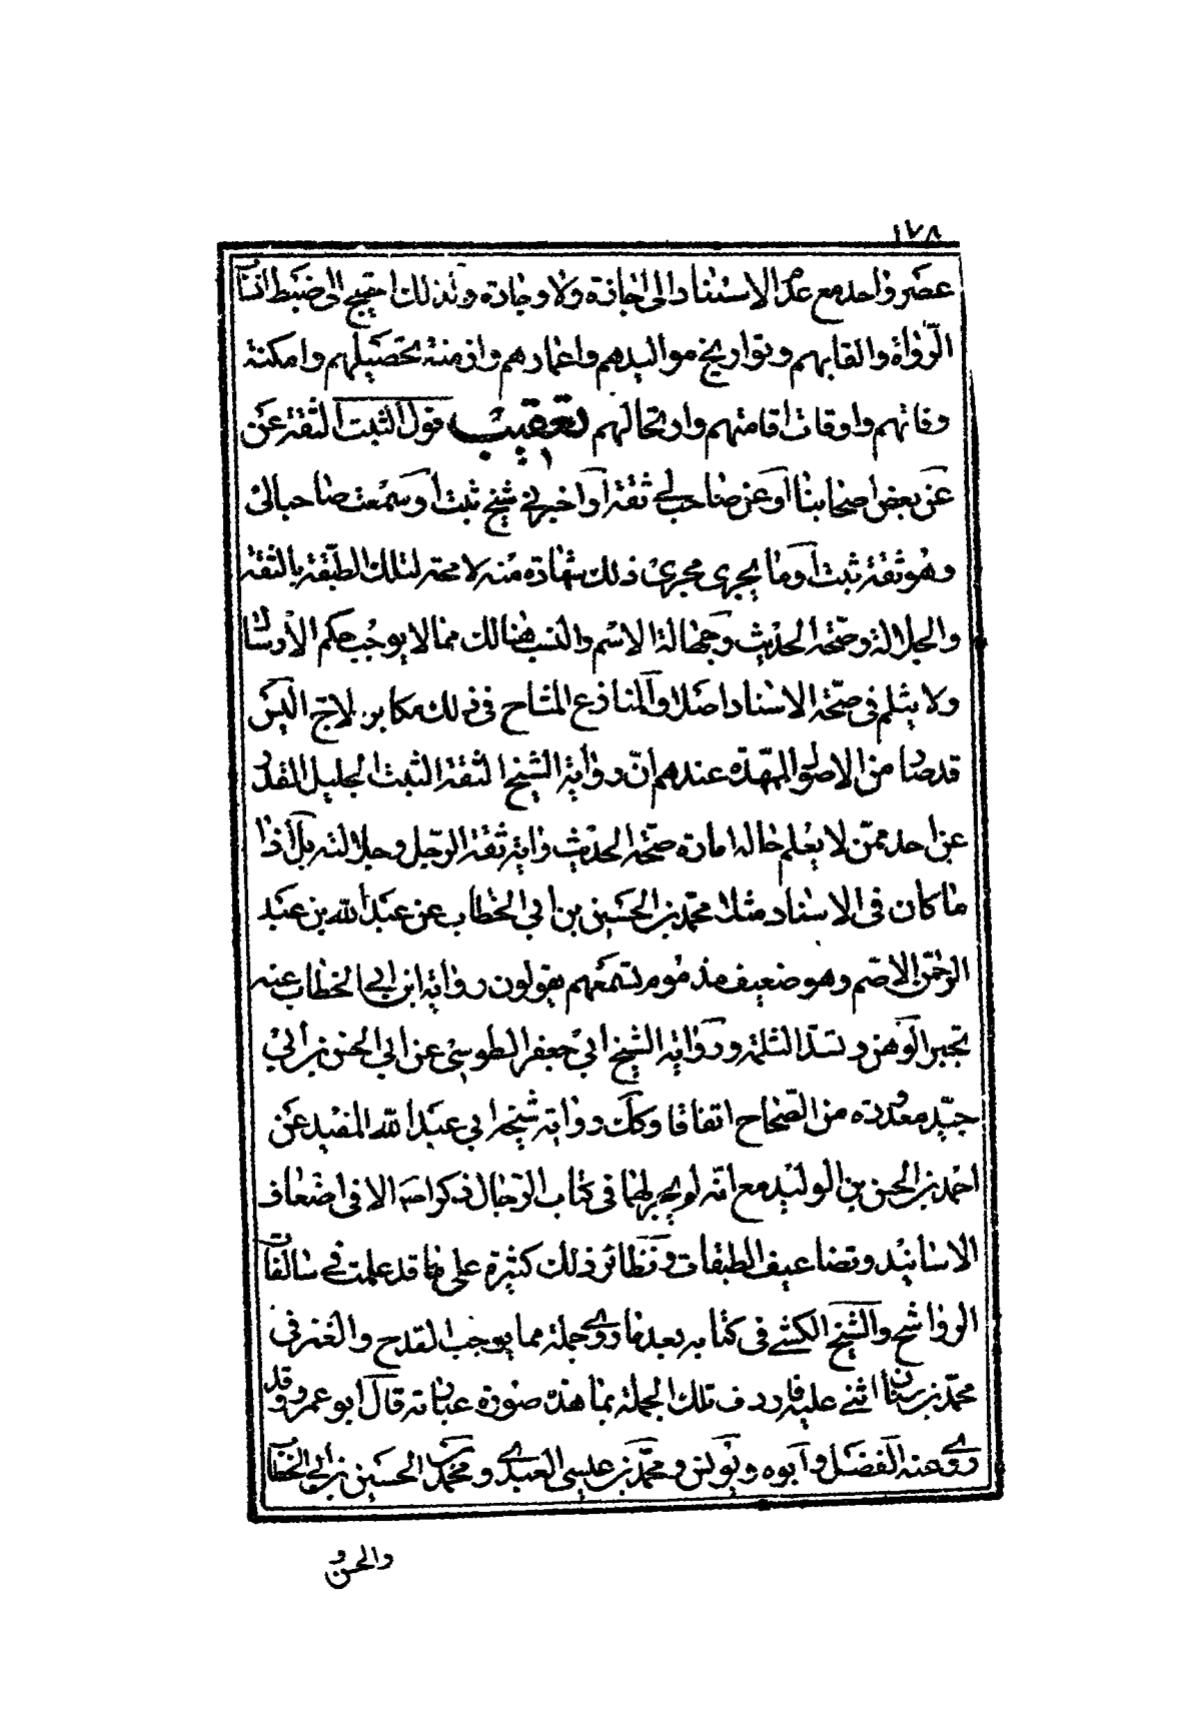 ١٧٨
عصر واحد مع عدم الاستناد الى اجازة ولا وجادة ولذلك احتيج الى ضبط انساب
الرواة والقابهم وتواريخ مواليدهم واعمارهم وازمنة تحصيلهم وامكنة
وفاتهم واوقات اقامتهم وارتحالهم تعقيب قول الثبت الثقة عن
عن بعض اصحابنا او عن صاحب لي ثقة او اخبرني شيخ ثبت او سمعت صاحبا لى
وهو ثقة ثبت او ما يجرى مجرى ذلك شهادة منه لا محة لتلك الطبقة بالثقة
والجلالة وصحة الحديث وجهالة الاسم والنسب هنالك مما لا يوجب حكم الارسال
ولا يثلم فى صحة الاسناد اصلا والمنازع المشاح فى ذلك مكابر لاج اليس
قد صار من الاصول الممهدة عندهم ان رواية الشيخ الثقة الثبت الجليل القدر
عن احد ممن لا يعلم حاله امارة صحة الحديث واية ثقة الرجل وجلالته بل اذا
ما كان فى الاسناد مثلا محمد بن الحسين بن ابي الخطاب عن عبد الله بن عبد
الرحمن الاصم وهو ضعيف مذموم تسمعهم يقولون رواية ابن ابي الخطاب عنه
تجبر الوهن وتسد الثلمة ورواية الشيخ ابي جعفر الطوسى عن ابي الحسن بن ابي
جيد معدودة من الصحاح اتفاقا وكك رواية شيخه ابي عبد الله المفيد عن
احمد بن الحسن بن الوليد مع انه لم يجر لهما فى كتاب الرجال ذكر اصه الا فى اضعاف
الاسانيد وتضاعيف الطبقات ونظائر ذلك كثيرة على ما قد علمت في سالفات
الرواشح والشيخ الكشي فى كتابه بعد ما روى جملة مما يوجب القدح والغمز فى
محمد بن سنان اثنى عليه فاردف تلك الجملة بما هذه صورة عبارته قال ابو عمرو وقد
روى عنه الفضل وابوه ويونس ومحمد بن عيسى العبيدي ومحمد بن الحسين بن ابي الخطاب
والحسن و